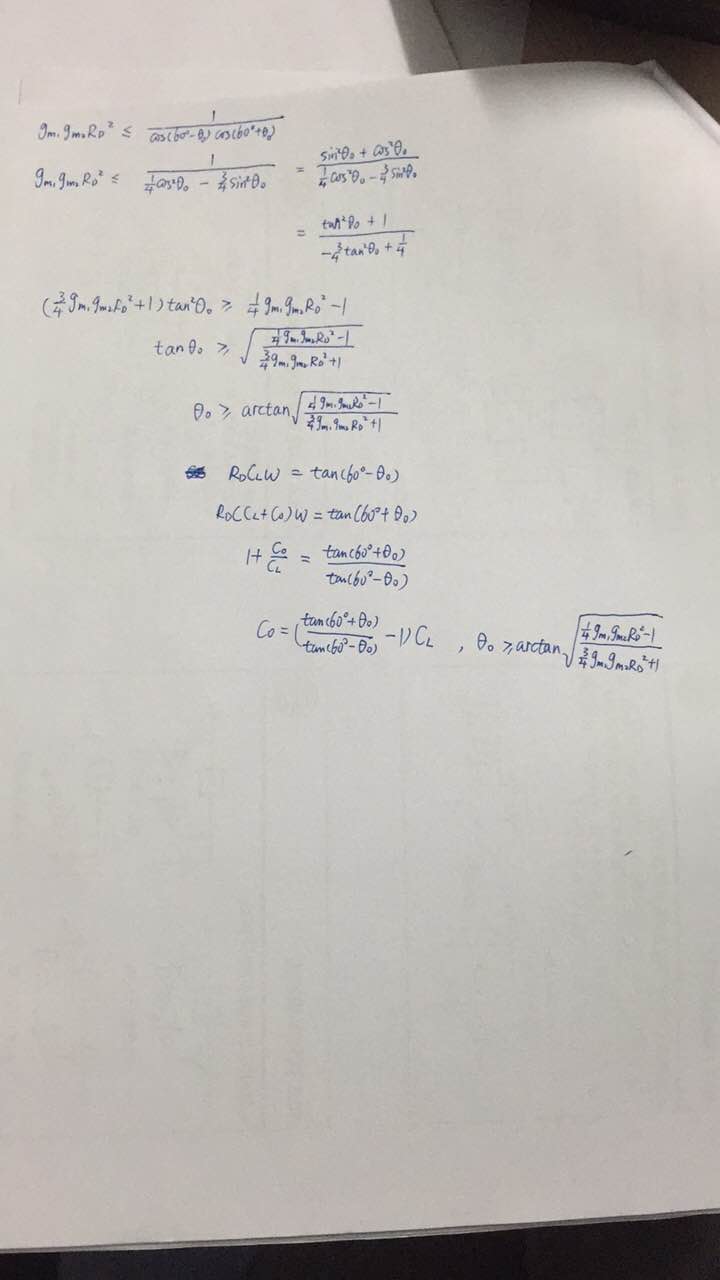 gm₁gm₂R_D² ≤ 1/(cos(60°-θ₀)cos(60°+θ₀))
gm₁gm₂R_D² ≤ 1/(¼cos²θ₀ - ¾sin²θ₀) = (sin²θ₀ + cos²θ₀)/(¼cos²θ₀ - ¾sin²θ₀)
= (tan²θ₀ + 1)/(-¾tan²θ₀ + ¼)
(¾gm₁gm₂R_D² + 1)tan²θ₀ ≥ ¼gm₁gm₂R_D² - 1
tanθ₀ ≥ √((¼gm₁gm₂R_D² - 1)/(¾gm₁gm₂R_D² + 1))
θ₀ ≥ arctan√((¼gm₁gm₂R_D² - 1)/(¾gm₁gm₂R_D² + 1))
R_DC_LW = tan(60°-θ₀)
R_D(C_L+C₀)W = tan(60°+θ₀)
1 + C₀/C_L = tan(60°+θ₀)/tan(60°-θ₀)
C₀ = (tan(60°+θ₀)/tan(60°-θ₀) - 1)C_L , θ₀ ≥ arctan√((¼gm₁gm₂R_D² - 1)/(¾gm₁gm₂R_D² + 1))